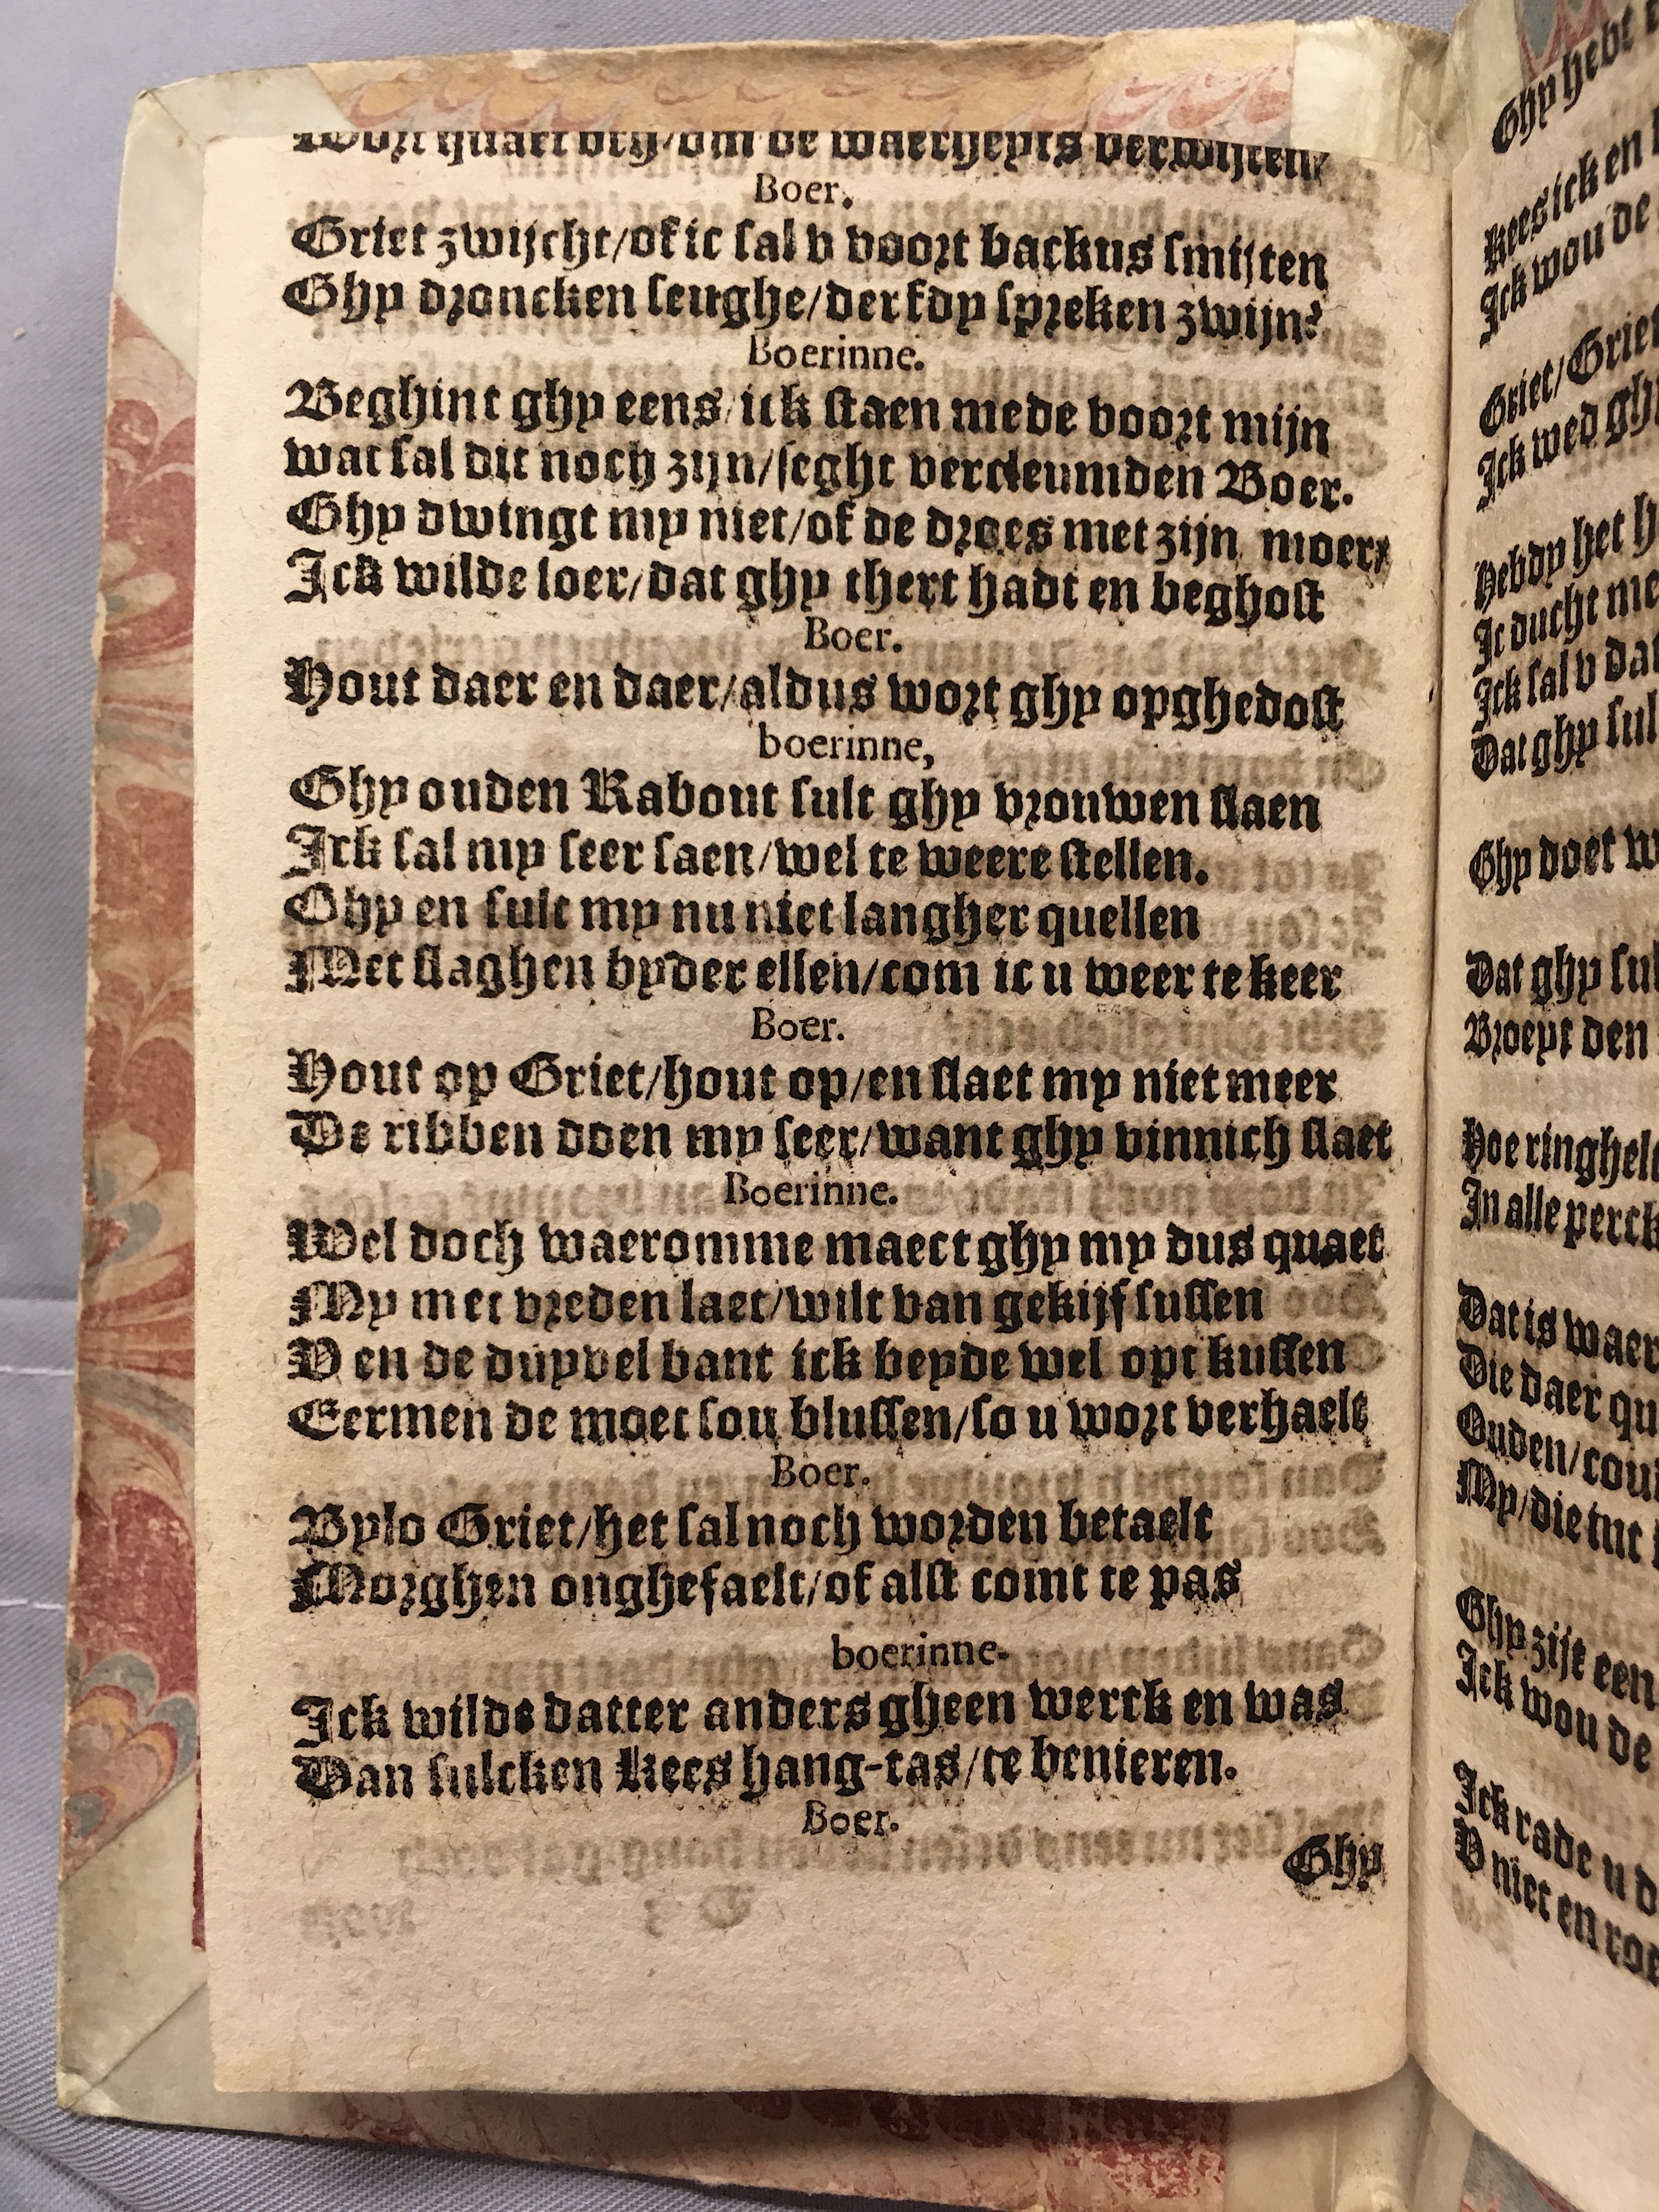 Wort quaet bry/om de waerheyts verwijten
Boer.
Griet zwijcht/of ic sal v voort backus smijten
Ghy droncken seughe/derfdy spreken zwijn?
Boerinne.
Beghint ghy eens/ick staen mede voort mijn
wat sal dit noch zijn/seght vercleumden Boer.
Ghy dwingt my niet/of de droes met zijn moer
Ick wilde loer/dat ghy thert hadt en beghost
Boer.
Hout daer en daer/aldus wort ghy opghedost
boerinne,
Ghy ouden Rabout sult ghy vrouwen slaen
Ick sal my seer saen/wel te weere stellen.
Ghy en sult my nu niet langher quellen
Met slaghen byder ellen/com ic u weer te keer
Boer.
Hout op Griet/hout op/en slaet my niet meer
De ribben doen my seer/want ghy vinnich slaet
Boerinne.
Wel doch waeromme maect ghy my dus quaet
My met vreden laet/wilt van gekijf sussen
V en de duyvel bant ick beyde wel opt kussen
Eermen de moet sou blussen/so u wort verhaelt
Boer.
Bylo Griet/het sal noch worden betaelt
Morghen onghefaelt/of alst comt te pas
boerinne.
Ick wilde datter anders gheen werck en was
Dan sulcken Kees hang-tas/te benieren.
Boer.
Ghy
Ghy hebt
Kees ick en
Ick wou de
Griet/Griet
Ick wed ghy
Hebdy het h
Ic ducht
Ick sal v dat
Dat ghy sul
Ghy doet
Dat ghy sul
Broeyt den
Hoe ringhel
In alle perck
Dat is waer
Die daer qu
Ouden/cou
My/die
Ghy zijt een
Ick wou de
Ick rade u d
V niet en roe